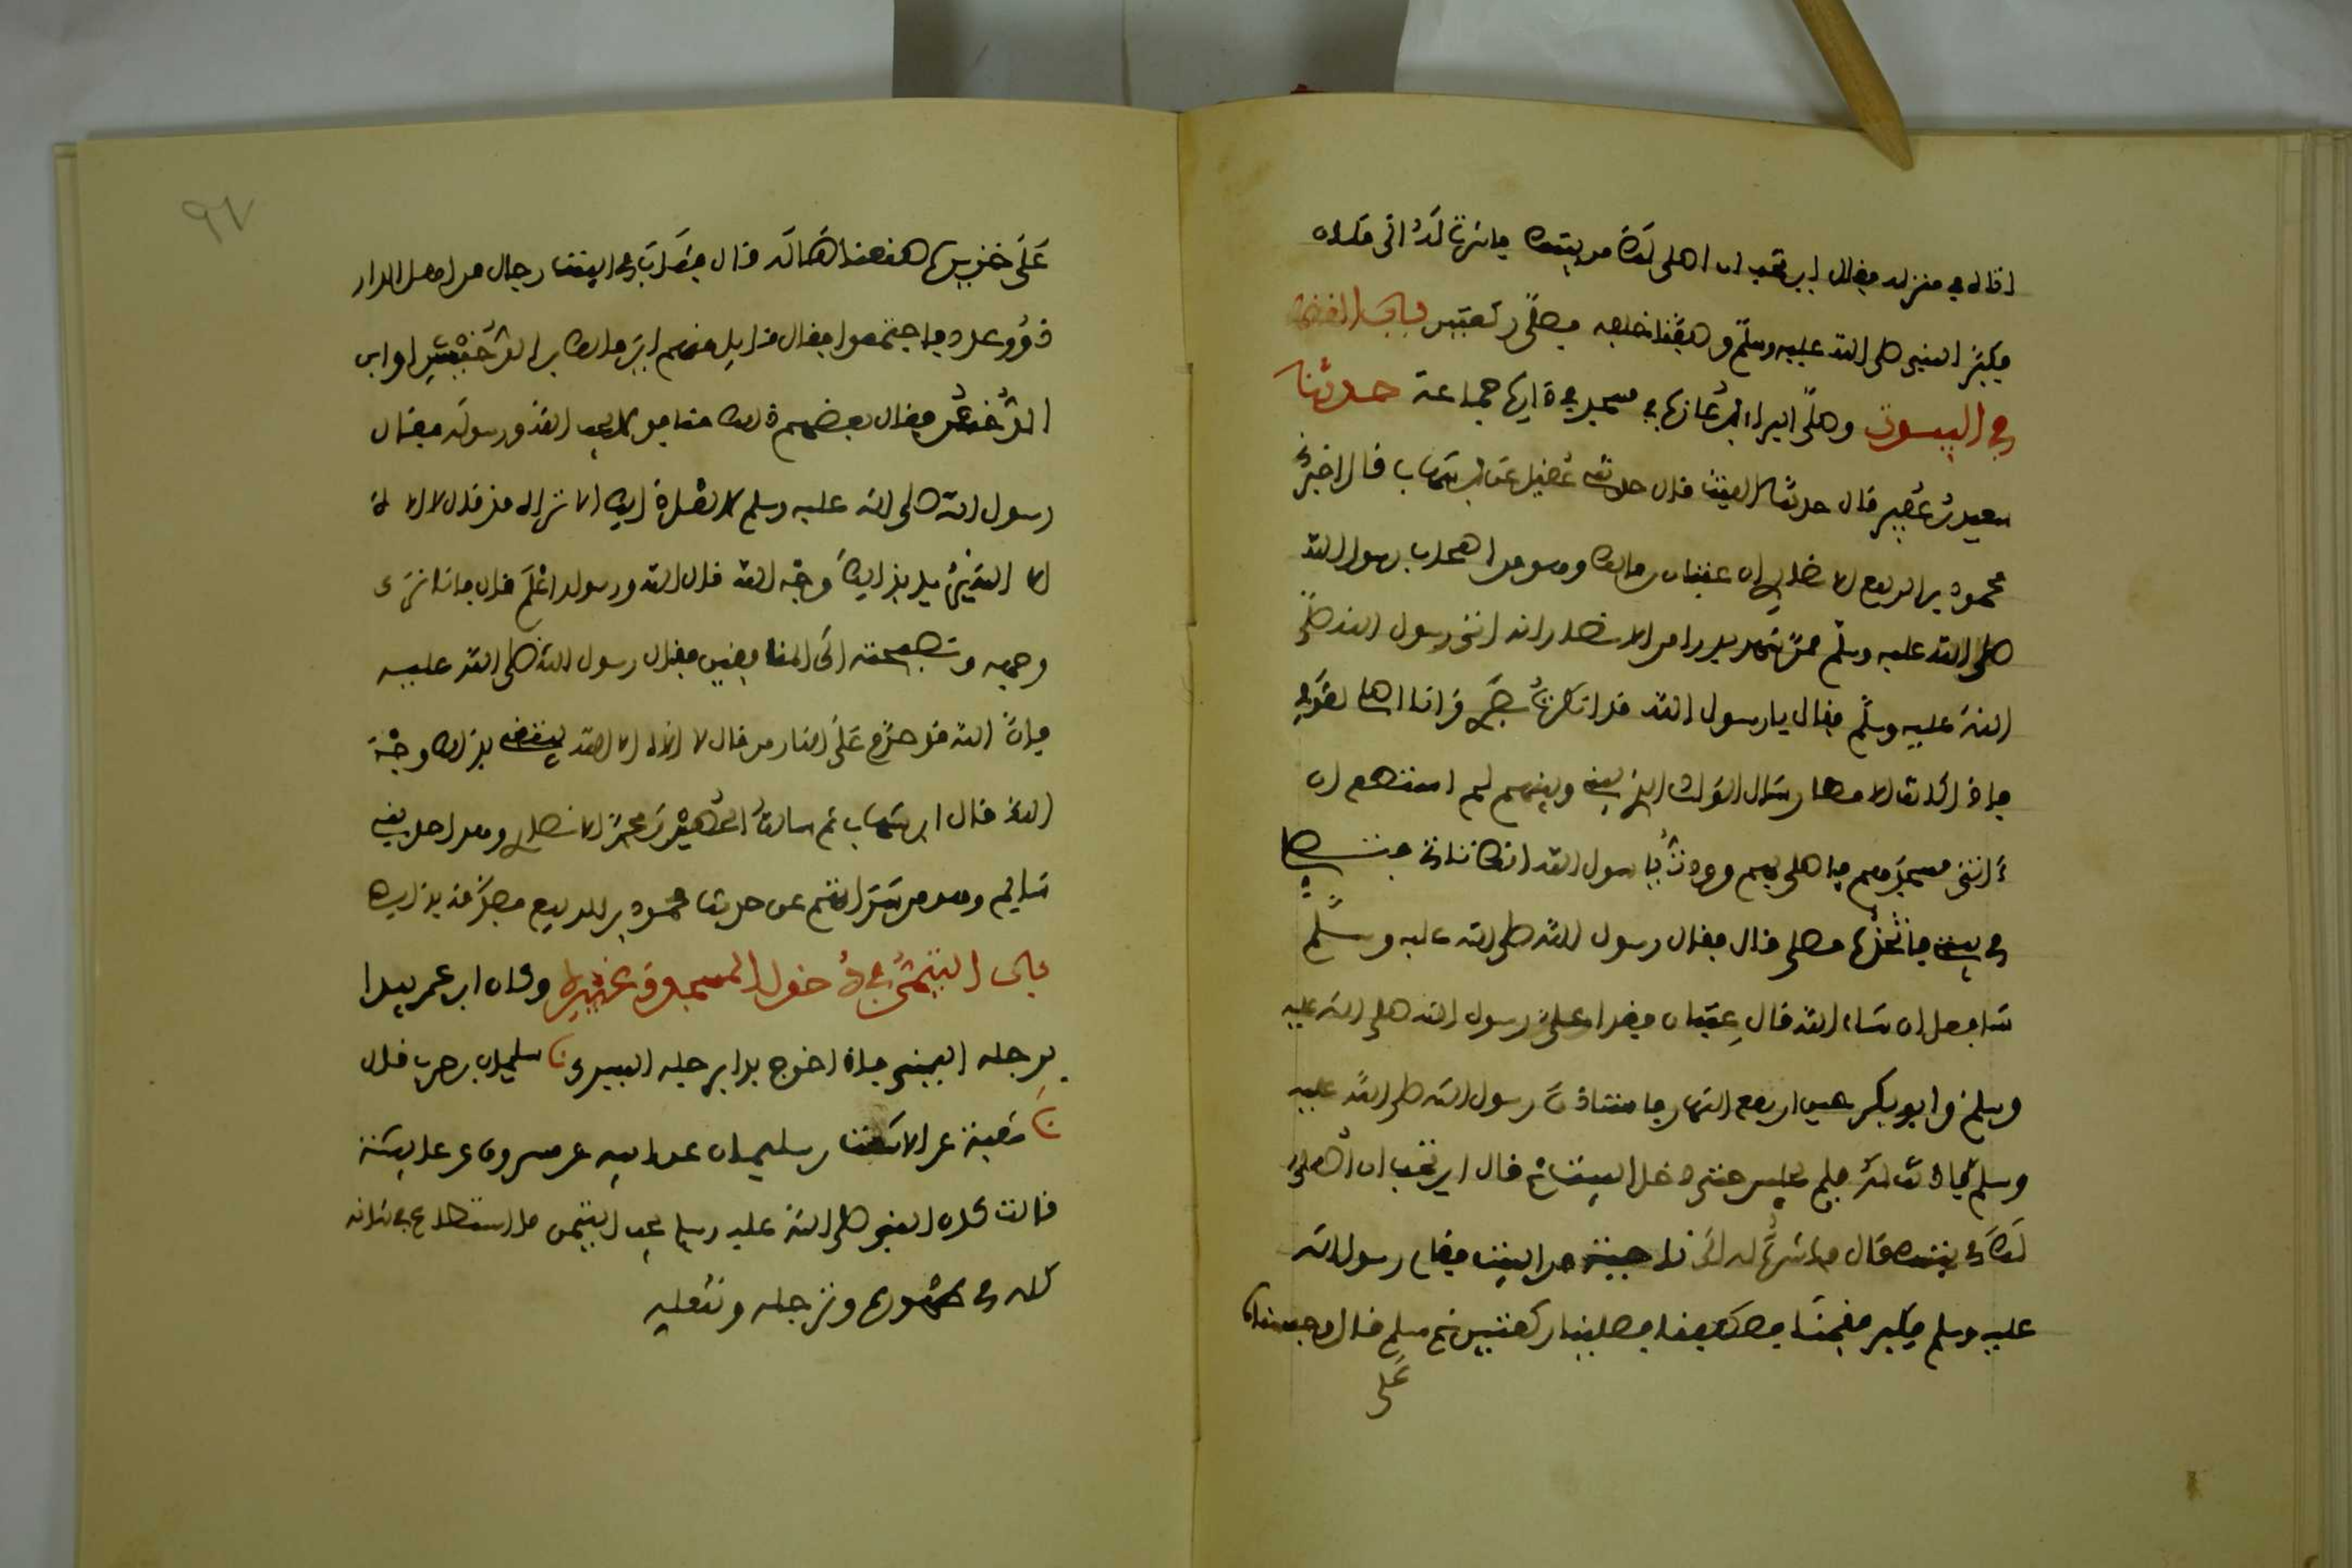 اتاه في منزله فقال اين تحب ان اصلى لك من بيتك فاشرت له الى مكان
فكبر النبي صلى الله عليه وسلم وصففنا خلفه فصلى ركعتين باب المساجد
في البيوت وصلى البراء بن عازب في مسجد في داره جماعة حدثنا
سعيد بن عفير قال حدثنا الليث قال حدثني عقيل عن ابن شهاب قال اخبرني
محمود بن الربيع الانصاري ان عتبان بن مالك وهو من اصحاب رسول الله
صلى الله عليه وسلم ممن شهد بدرا من الانصار انه اتى رسول الله صلى
الله عليه وسلم فقال يا رسول الله قد انكرت بصري وانا اصلي لقومي
فاذا كانت الامطار سال الوادي الذي بيني وبينهم لم استطع ان
اتي مسجدهم فاصلي بهم ووددت يا رسول الله انك تاتيني فتصلي
في بيتي فاتخذه مصلى قال فقال رسول الله صلى الله عليه وسلم
سافعل ان شاء الله قال عتبان فغدا علي رسول الله صلى الله عليه
وسلم وابو بكر حين ارتفع النهار فاستاذن رسول الله صلى الله عليه
وسلم فاذنت له فلم يجلس حتى دخل البيت ثم قال اين تحب ان اصلي
لك في بيتك قال فاشرت له الى ناحية من البيت فقام رسول الله
عليه وسلم فكبر فقمنا فصففنا فصلينا ركعتين ثم سلم قال وحبسناه
على
٩٧
على خزيرة صنعناها له قال فثاب في البيت رجال من اهل الدار
ذوو عدد فاجتمعوا فقال قايل منهم اين مالك بن الدخيشن او ابن
الدخشن فقال بعضهم ذلك منافق لا يحب الله ورسوله فقال
رسول الله صلى الله عليه وسلم لا تقل ذلك الا تراه قد قال لا اله
الا الله يريد بذلك وجه الله قال الله ورسوله اعلم قال فانا نرى
وجهه ونصيحته الى المنافقين فقال رسول الله صلى الله عليه
فان الله قد حرم على النار من قال لا اله الا الله يبتغي بذلك وجه
الله قال ابن شهاب ثم سالت الحصين بن محمد الانصاري وهو احد بني
سالم وهو من سراتهم عن حديث محمود بن الربيع فصدقه بذلك
باب التيمن في دخول المسجد وغيره وكان ابن عمر يبدا
برجله اليمنى فاذا خرج بدا برجله اليسرى نا سليمان بن حرب قال
نا شعبة عن الاشعث بن سليمان عن ابيه عن مسروق عن عايشة
قالت كان النبي صلى الله عليه وسلم يحب التيمن ما استطاع في شانه
كله في طهوره وترجله وتنعله